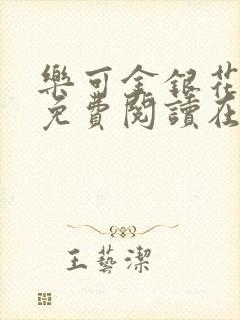 樂可金銀花
免費閱讀在
王藝潔